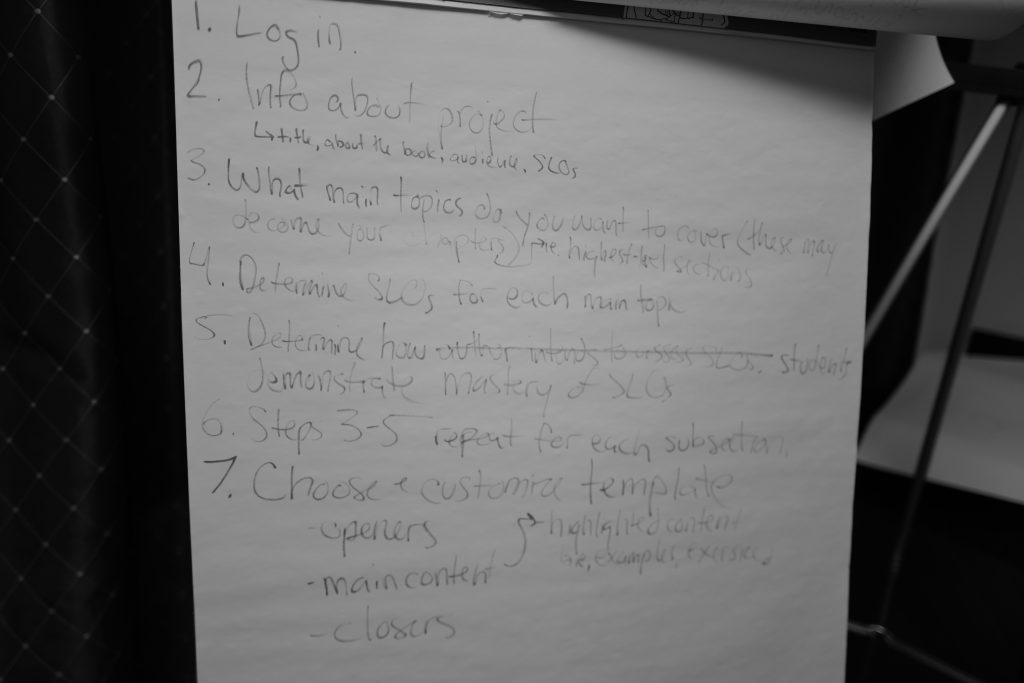 1. Log in.
2. Info about project
↳ title, about the book, audience, SLOs
3. What main topics do you want to cover (these may
become your chapters) i.e. highest-level sections
4. Determine SLOs for each main topic
5. Determine how author intends to assess SLOs. students
demonstrate mastery of SLOs
6. Steps 3-5 repeat for each subsection.
7. Choose + customize template
-openers
-highlighted content
i.e., examples, exercises
-main content
-closers